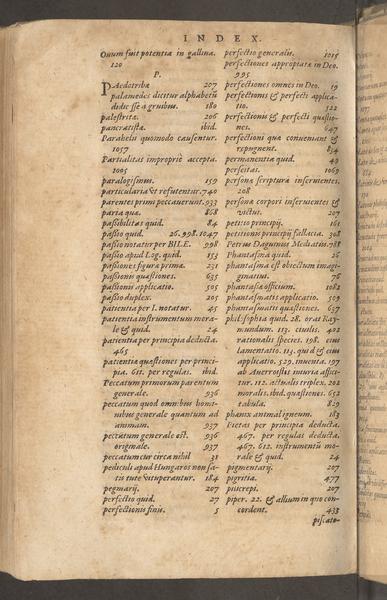 INDEX.
Ouum fuit potentia in gallina.
120
P.
PAedotribæ 207
palamedes dicitur alphabetũ
didicisse a gruibus. 180
palestritæ. 206
pancratistæ. ibid.
Parahelij quomodo causentur.
1057
Partialitas impropriè accepta.
1003
paralogismus. 159
particularia vt refutentur. 740
parentes primi peccauerunt. 933
parta quæ. 868
passibilitas quid. 84
passio quid. 26. 998. 1047
passio notatur per BILE. 998
passio apud Log. quid. 153
passiones figura prima. 231
passionis quæstiones. 635
passionis applicatio. 505
passio duplex. 205
patientia per I. notatur. 45
patientia instrumentum mora-
le & quid. 24
patientia per principia deducta.
465
patientiæ quæstiones per princi-
pia. 611. per regulas. ibid.
Peccatum primorum parentum
generale. 936
peccatum quod omnibus homi-
nibus generale quantum ad
animam. 937
peccatum generale est. 936
originale. 937
peccatum cur circa nihil 31
pediculi apud Hungaros non sa-
tis tute vituperantur. 184
pegmarij. 207
perfectio quid. 27
perfectionis finis. 5
perfectio generalis. 1015
perfectiones appropriatæ in Deo.
995
perfectiones omnes in Deo. 19
perfectionis & perfecti applica-
tio. 522
perfectionis & perfecti quæstio-
nes. 647
perfectioni quæ conueniant &
repugnent. 854
permanentia quid. 49
perseitas. 1069
personæ scripturæ inseruientes.
208
personæ corpori inseruientes &
victui. 207
petitio principij. 165
petitionis principij fallacia. 308
Petrus Dagunius Mediatin. 788
Phantasma quid. 26
phantasma est obiectum imagi-
ginatus. 76
phantasiæ officium. 1082
phantasmatis applicatio. 509
phantasmatis quæstiones. 637
philosophia quid. 28. orat Ray-
mundum. 113. ciuilis. 402
rationalis species. 198. eius
lamentatio. 113. quid & eius
applicatio. 529. inuenta. 197
ab Auerroistis iniuria affici-
tur. 112. actualis triplex. 202
moralis. ibid. quæstiones. 652
tabula. 829
phœnix animal igneum. 183
Pietas per principia deducta.
467. per regulas deducta.
467. 612. instrumentũ mo-
rale & quid. 24
pigmentarij. 207
pigritia. 477
piiscrepi. 207
piper. 22. & allium in quo con-
cordent. 433
piscato-